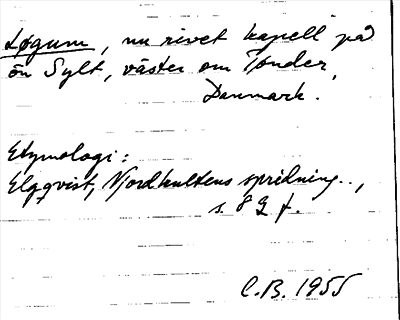 Løgum, nu rivet kapell på
ön Sylt, väster om Tønder,
Danmark.
Etymologi:
Elgqvist, Njordkultens spridning..,
s. 89 f.
C.B. 1955